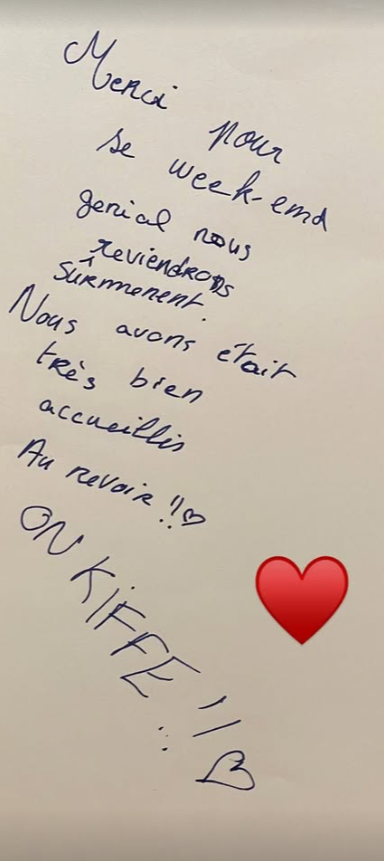 Merci pour
se week-end
genial nous
reviendrons
sûrmenent.
Nous avons était
très bien
accueillis
Au revoir !!♡
ON KIFFE !!
♡